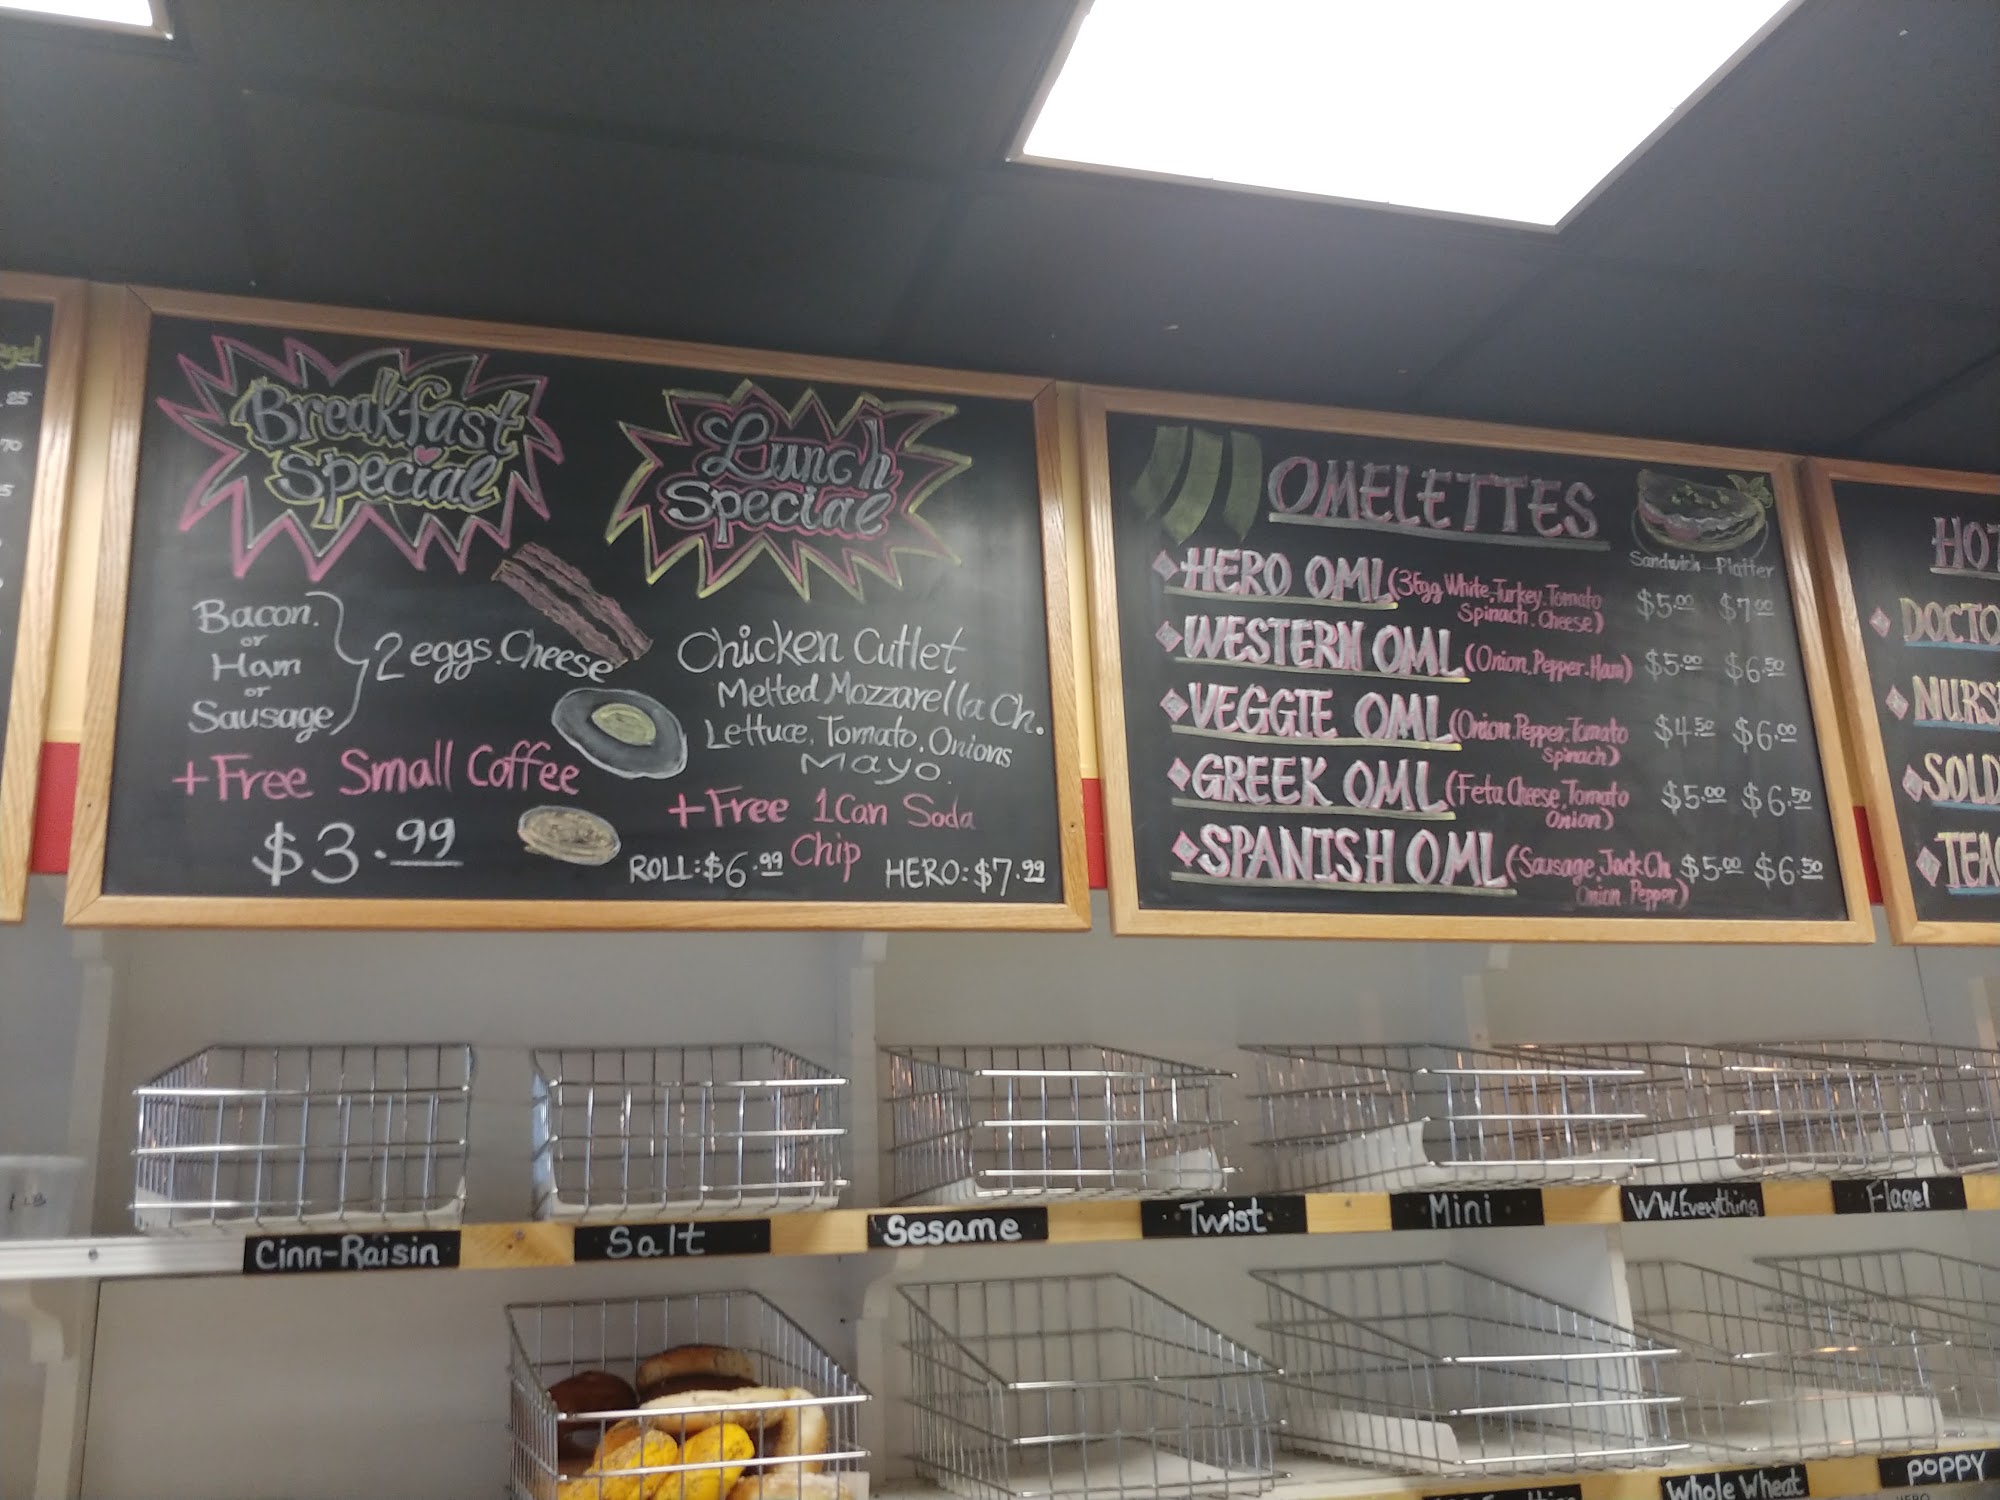 25
70
Breakfast
Special
Bacon.
or
Ham
or
Sausage
2 eggs. Cheese
+Free Small Coffee
$3.99
Lunch
Special
Chicken Cutlet
Melted Mozzarella Ch.
Lettuce, Tomato, Onions
Mayo.
+Free 1 Can Soda
Chip
ROLL: $6.99
HERO: $7.99
OMELETTES
Sandwich Platter
HERO OML (3 Egg White, Turkey, Tomato
Spinach. Cheese) $5.00 $7.00
WESTERN OML (Onion, Pepper. Ham) $5.00 $6.50
VEGGIE OML (Onion. Pepper. Tomato
Spinach) $4.50 $6.00
GREEK OML (Feta Cheese, Tomato
Onion) $5.00 $6.50
SPANISH OML (Sausage, Jack Ch
Onion. Pepper) $5.00 $6.50
HOT
DOCTO
NURS
SOLD
TEA
1 LB
Cinn-Raisin
Salt
Sesame
Twist
Mini
WW.Everything
Flagel
Whole Wheat
POPPY